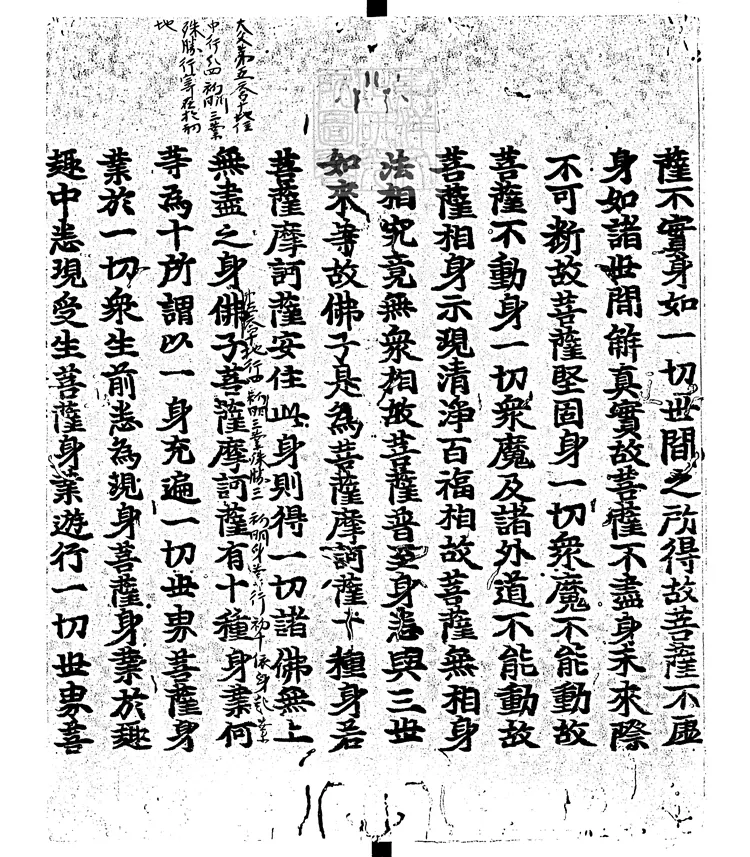 薩不實身如一切世間之所得故菩薩不虛
身如諸世間解真實故菩薩不盡身未來際
不可斷故菩薩堅固身一切衆魔不能動故
菩薩不動身一切衆魔及諸外道不能動故
菩薩相身示現清淨百福相故菩薩無相身
法相究竟無衆相故菩薩普至身悉與三世
如來等故佛子是為菩薩摩訶薩十種身若
菩薩摩訶薩安住此身則得一切諸佛無上
無盡之身佛子菩薩摩訶薩有十種身業何
等為十所謂以一身充遍一切世界菩薩身
業於一切衆生前悉為現身菩薩身業於趣
趣中悉現受生菩薩身業遊行一切世界菩
大文第五答十地位
中行八四初明三業
殊勝行寄在於初
地